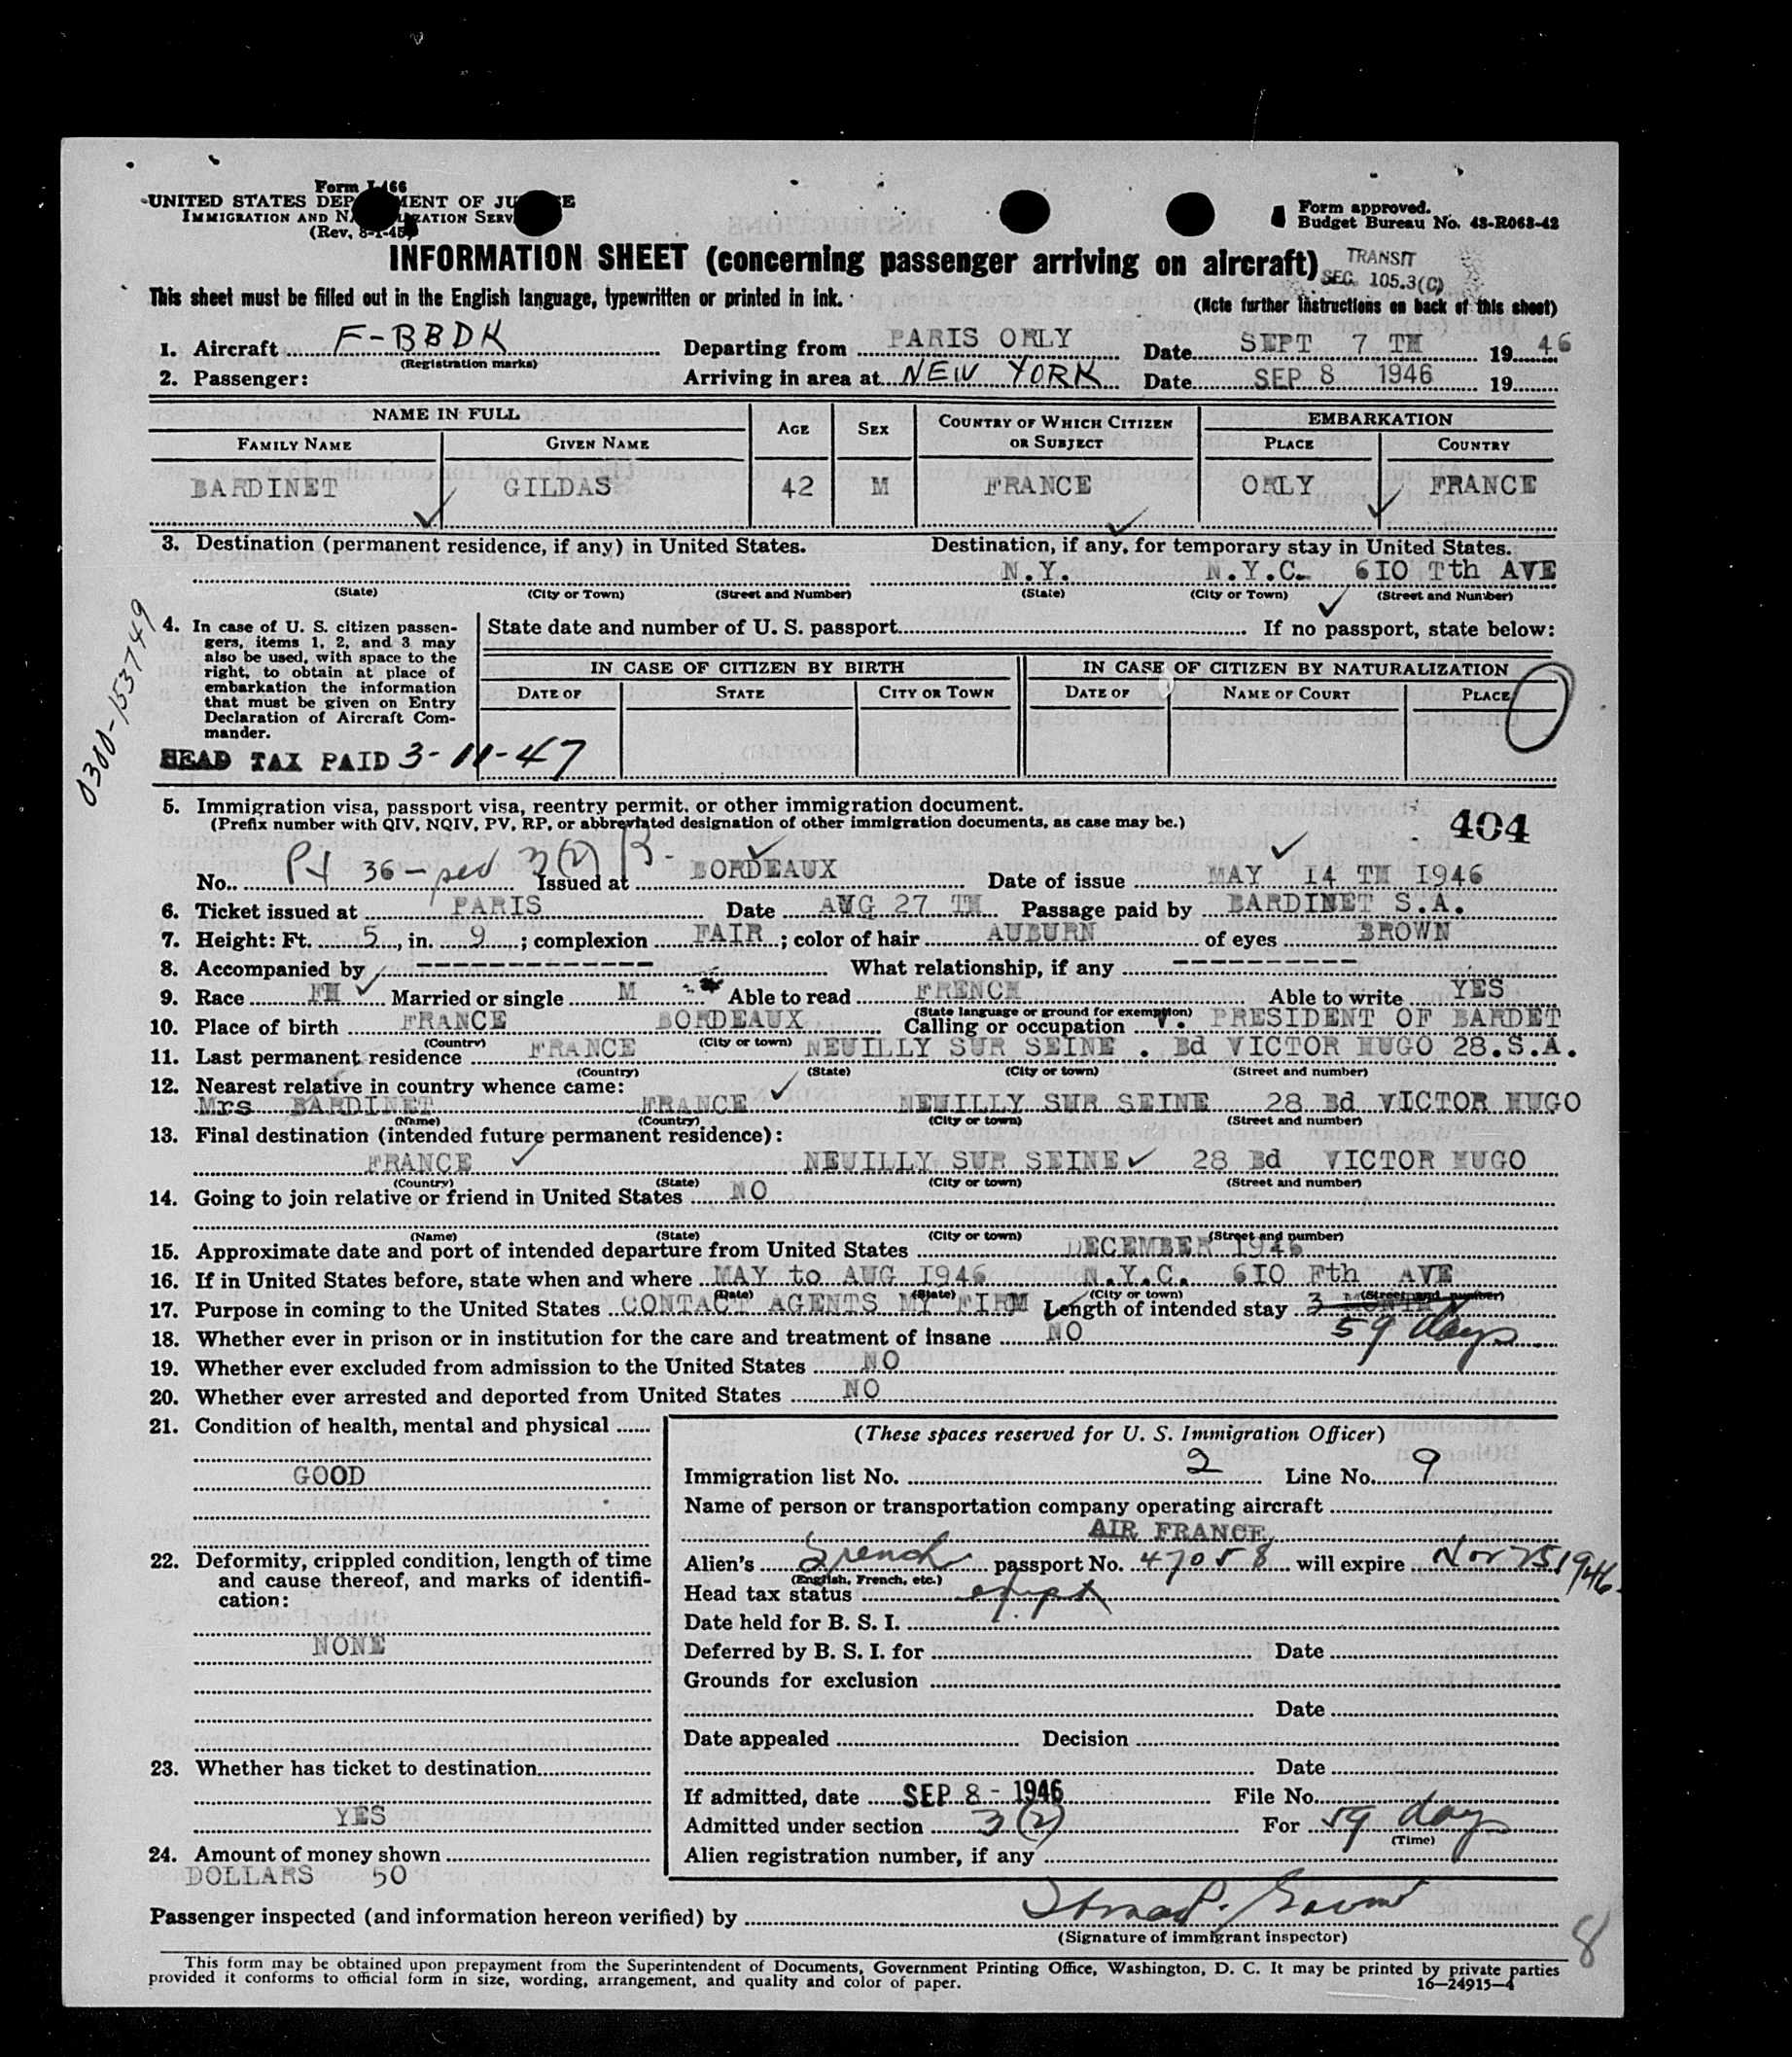 Form I-466
UNITED STATES DEPARTMENT OF JUSTICE
IMMIGRATION AND NATURALIZATION SERVICE
(Rev. 8-1-45)
Form approved.
Budget Bureau No. 43-R063-42
INFORMATION SHEET (concerning passenger arriving on aircraft)
TRANSIT
SEC. 105.3(C)
This sheet must be filled out in the English language, typewritten or printed in ink.
(Note further instructions on back of this sheet)
1. Aircraft F-BBDK Departing from PARIS ORLY Date SEPT 7 TH 1946
(Registration marks)
2. Passenger: Arriving in area at NEW YORK Date SEP 8 1946 19
NAME IN FULL AGE SEX COUNTRY OF WHICH CITIZEN OR SUBJECT EMBARKATION
FAMILY NAME GIVEN NAME PLACE COUNTRY
BARDINET GILDAS 42 M FRANCE ORLY FRANCE
3. Destination (permanent residence, if any) in United States. Destination, if any, for temporary stay in United States.
N.Y. N.Y.C. 6IO Tth AVE
(State) (City or Town) (Street and Number) (State) (City or Town) (Street and Number)
4. In case of U. S. citizen passen-
gers, items 1, 2, and 3 may
also be used, with space to the
right, to obtain at place of
embarkation the information
that must be given on Entry
Declaration of Aircraft Com-
mander.
State date and number of U. S. passport If no passport, state below:
IN CASE OF CITIZEN BY BIRTH IN CASE OF CITIZEN BY NATURALIZATION
DATE OF STATE CITY OR TOWN DATE OF NAME OF COURT PLACE
0300-153749
HEAD TAX PAID 3-11-47
5. Immigration visa, passport visa, reentry permit, or other immigration document.
(Prefix number with QIV, NQIV, PV, RP, or abbreviated designation of other immigration documents, as case may be.)
404
No. 36 3(2) B. Issued at BORDEAUX Date of issue MAY I4 TH I946
6. Ticket issued at PARIS Date AUG 27 TH Passage paid by BARDINET S.A.
7. Height: Ft. 5, in. 9; complexion FAIR; color of hair AUBURN of eyes BROWN
8. Accompanied by -------------- What relationship, if any -----------
9. Race FH Married or single M Able to read FRENCH Able to write YES
(State language or ground for exemption)
10. Place of birth FRANCE BORDEAUX Calling or occupation V. PRESIDENT OF BARDET
(Country) (City or town)
11. Last permanent residence FRANCE NEUILLY SUR SEINE . Bd VICTOR HUGO 28.S.A.
(Country) (State) (City or town) (Street and number)
12. Nearest relative in country whence came:
Mrs BARDINET FRANCE NEUILLY SUR SEINE 28 Bd VICTOR HUGO
(Name) (Country) (City or town) (Street and number)
13. Final destination (intended future permanent residence):
FRANCE NEUILLY SUR SEINE 28 Bd VICTOR HUGO
(Country) (State) (City or town) (Street and number)
14. Going to join relative or friend in United States NO
(Name) (State) (City or town) (Street and number)
15. Approximate date and port of intended departure from United States DECEMBER I946
16. If in United States before, state when and where MAY to AUG I946 N.Y.C. 6IO Fth AVE
(Date) (State) (City or town) (Street and number)
17. Purpose in coming to the United States CONTACT AGENTS MY FIRM Length of intended stay 3 MONTH
59 days
18. Whether ever in prison or in institution for the care and treatment of insane NO
19. Whether ever excluded from admission to the United States NO
20. Whether ever arrested and deported from United States NO
21. Condition of health, mental and physical
GOOD
22. Deformity, crippled condition, length of time
and cause thereof, and marks of identifi-
cation:
NONE
23. Whether has ticket to destination
YES
24. Amount of money shown
DOLLARS 50
(These spaces reserved for U. S. Immigration Officer)
Immigration list No. 2 Line No. 9
Name of person or transportation company operating aircraft
AIR FRANCE
Alien's French passport No. 47058 will expire Nov 25 1946
(English, French, etc.)
Head tax status
Date held for B. S. I.
Deferred by B. S. I. for Date
Grounds for exclusion
Date
Date appealed Decision
Date
If admitted, date SEP 8 - 1946 File No.
Admitted under section 3(2) For 59 days
(Time)
Alien registration number, if any
Passenger inspected (and information hereon verified) by
(Signature of immigrant inspector)
8
This form may be obtained upon prepayment from the Superintendent of Documents, Government Printing Office, Washington, D. C. It may be printed by private parties
provided it conforms to official form in size, wording, arrangement, and quality and color of paper.
16—24915-4